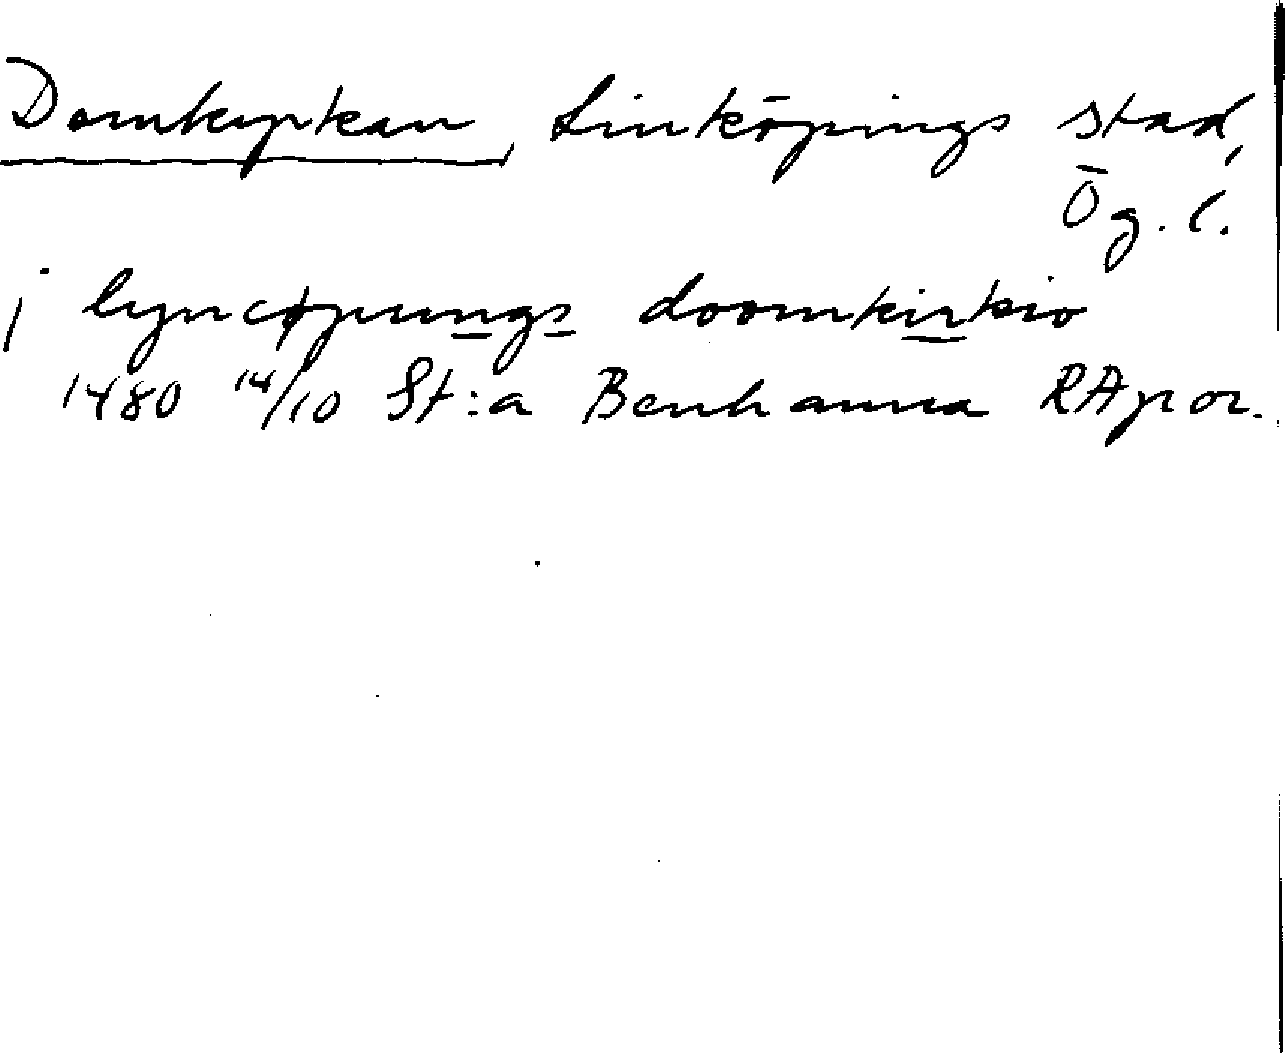 Domkyrkan, Linköpings stad,
Ög. l.
j lyncøpungs doomkirkio
1480 14/10 St:a Benhamra RApor.